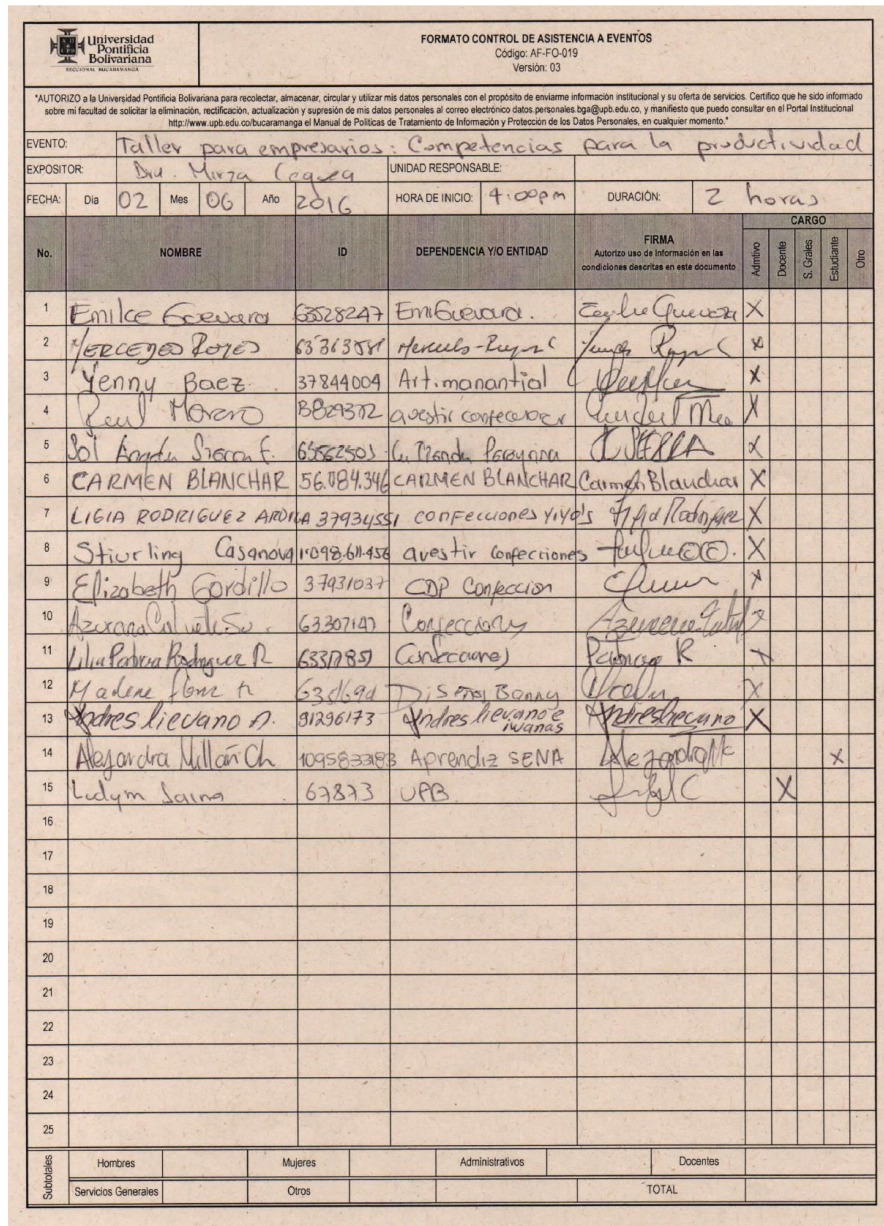 Universidad
Pontificia
Bolivariana
SECCIONAL BUCARAMANGA
FORMATO CONTROL DE ASISTENCIA A EVENTOS
Código: AF-FO-019
Versión: 03
"AUTORIZO a la Universidad Pontificia Bolivariana para recolectar, almacenar, circular y utilizar mis datos personales con el propósito de enviarme información institucional y su oferta de servicios. Certifico que he sido informado
sobre mi facultad de solicitar la eliminación, rectificación, actualización y supresión de mis datos personales al correo electrónico datos personales.bga@upb.edu.co, y manifiesto que puedo consultar en el Portal Institucional
http://www.upb.edu.co/bucaramanga el Manual de Políticas de Tratamiento de Información y Protección de los Datos Personales, en cualquier momento."
EVENTO: Taller para empresarios: Competencias para la productividad
EXPOSITOR: Dra. Mirza Cequea UNIDAD RESPONSABLE:
FECHA: Dia 02 Mes 06 Año 2016 HORA DE INICIO: 4:00pm DURACIÓN: 2 horas
No. NOMBRE ID DEPENDENCIA Y/O ENTIDAD FIRMA CARGO
Autorizo uso de información en las
condiciones descritas en este documento
Admtivo Docente S. Grales Estudiante Otro
1 Emilce Guevara 63528247 EmiGuevara. X
2 MERCEDES REYES X
3 Yenny Baez 37844004 Art.manantial X
4 Moreno X
5 Sol X
6 CARMEN BLANCHAR 56.084.346 CARMEN BLANCHAR Carmen Blanchar X
7 LIGIA RODRIGUEZ ARDILA 37934551 confecciones yiyo's Ligia Rodriguez X
8 Stiurling Casanova 1.098.611.456 avestir confecciones X
9 Elizabeth Gordillo 37931037 CDP Confeccion X
10 63307147 Confecciones
11 Lilia Patricia Rodriguez R Confecciones Patricia R X
12 Diseños X
13 Andres lievano A. 91296173 Andres lievano e
iwanas Andres lievano X
14 Alejandra Millán Ch 1095833183 Aprendiz SENA X
15 Ludym Jaimes 67873 UPB X
16
17
18
19
20
21
22
23
24
25
Subtotales Hombres Mujeres Administrativos Docentes
Servicios Generales Otros TOTAL